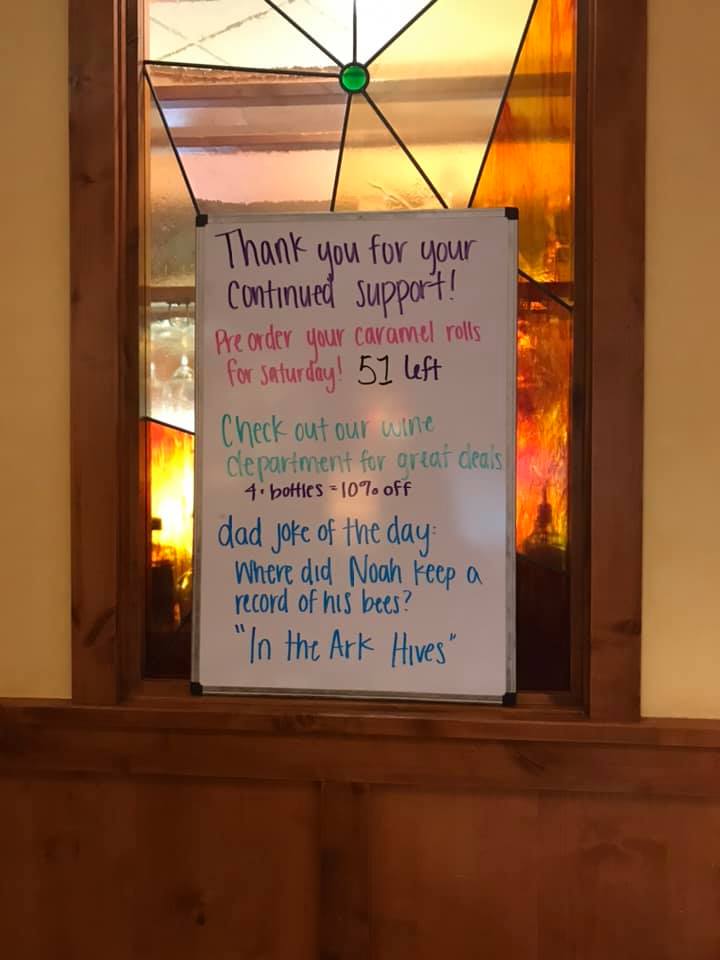 Thank you for your
continued support!
Pre order your caramel rolls
for saturday! 51 left
Check out our wine
department for great deals
4 bottles = 10% off
dad joke of the day:
Where did Noah keep a
record of his bees?
"In the Ark Hives"